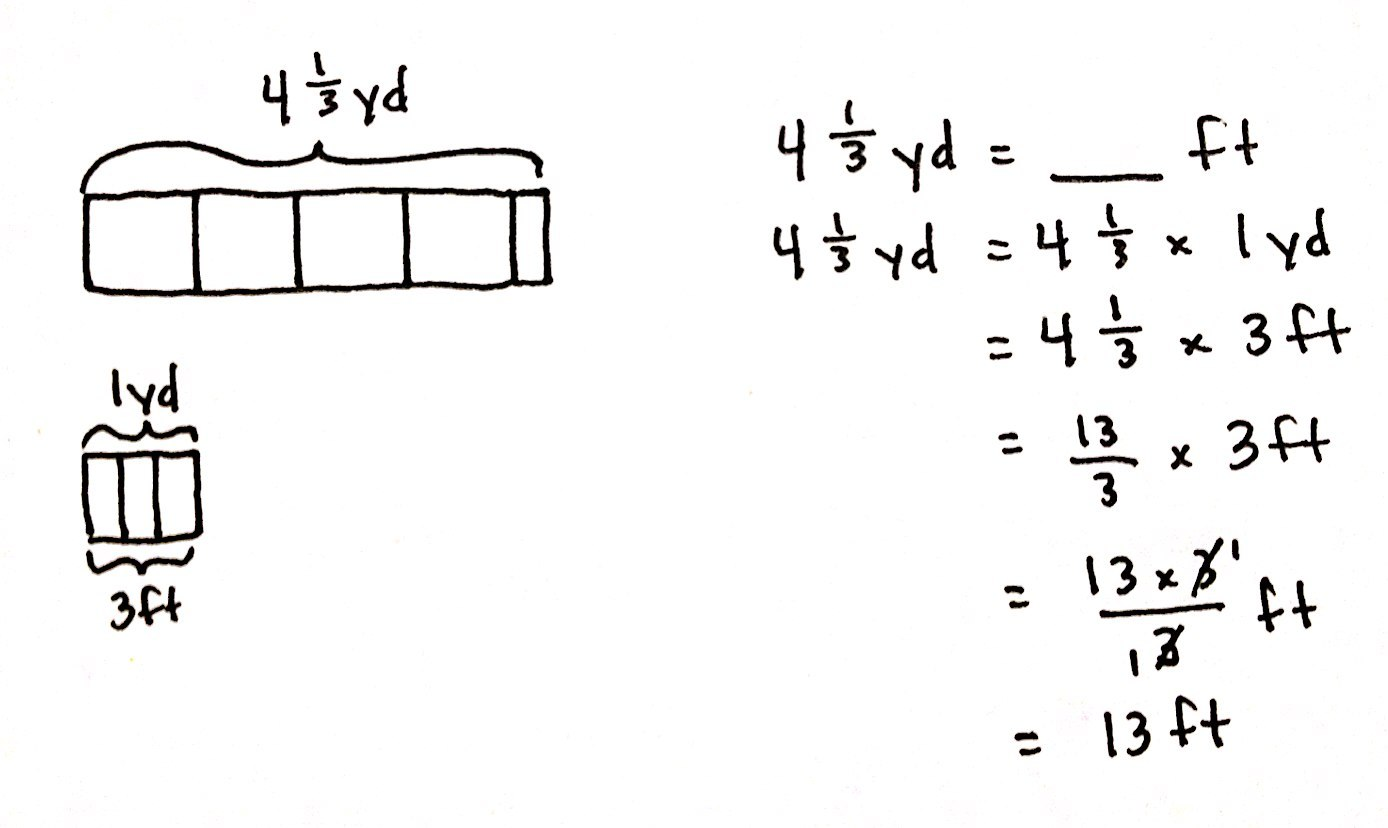 4 1/3 yd
1yd
3ft
4 1/3 yd = ___ ft
4 1/3 yd = 4 1/3 x 1yd
= 4 1/3 x 3ft
= 13/3 x 3ft
= (13 x 3̸ 1)/(1 3̸) ft
= 13 ft